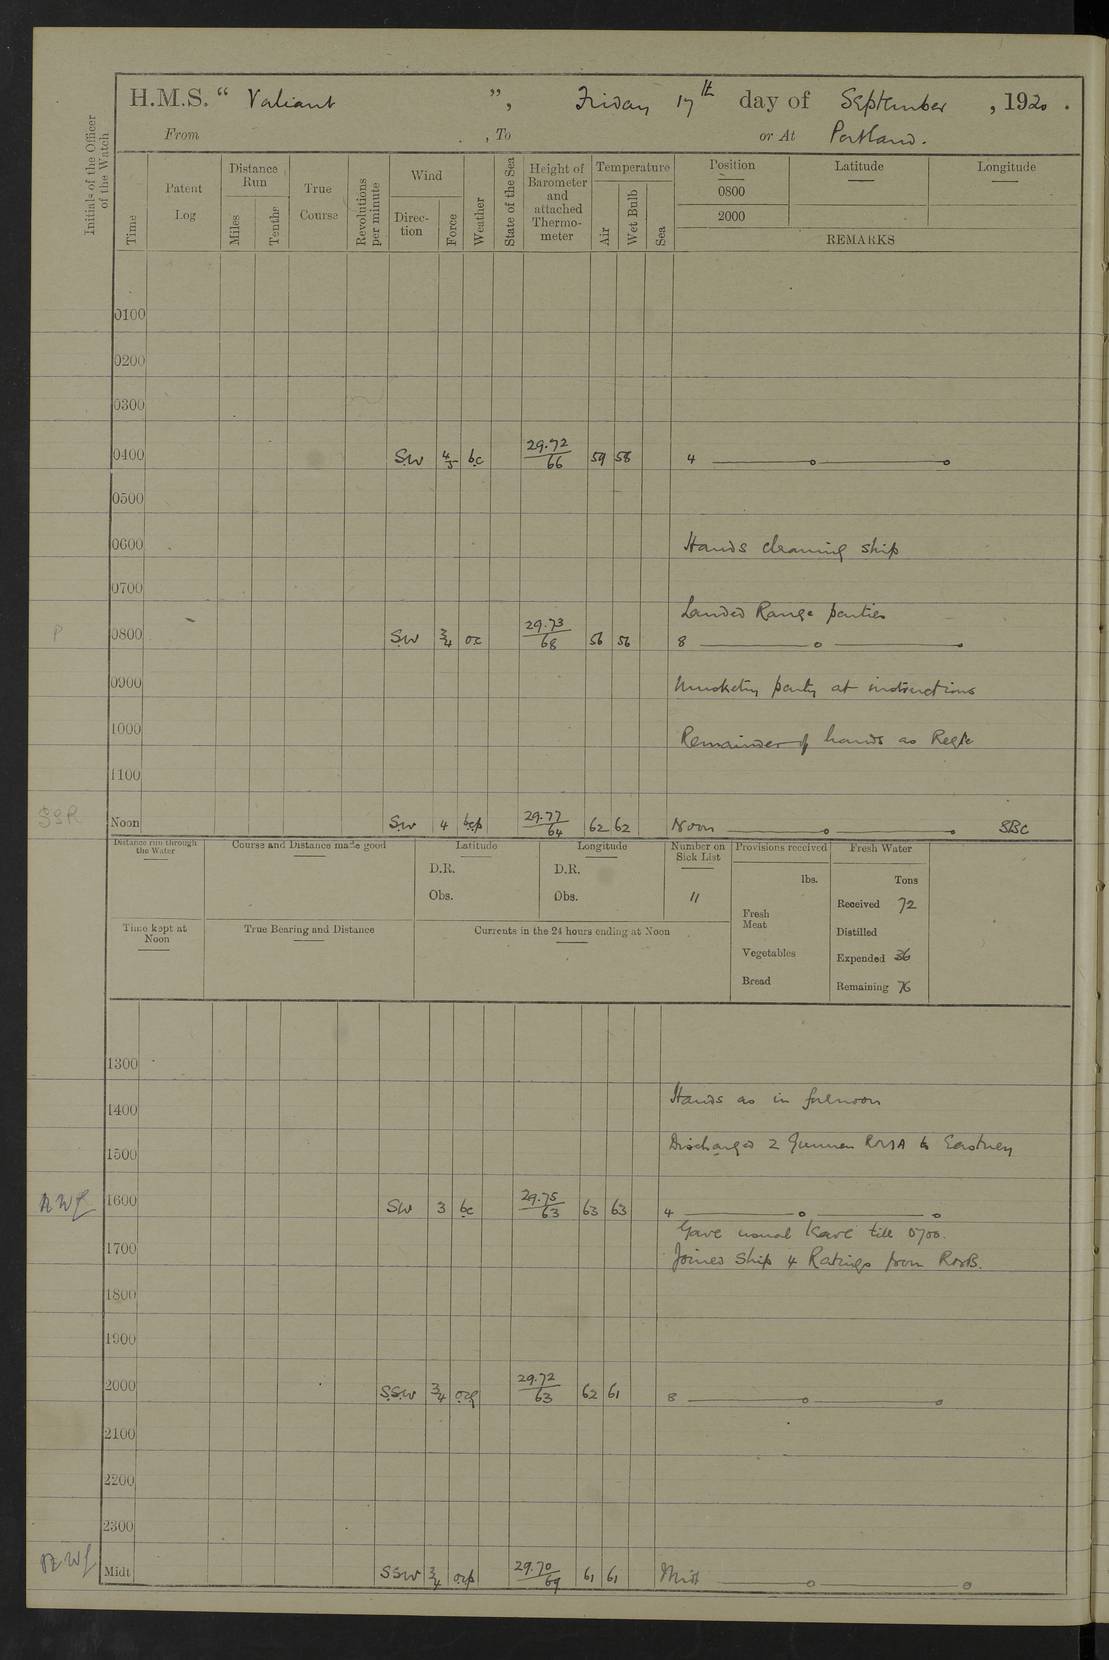 H.M.S. “ Valiant ”, Friday 17th day of September , 1920 .
From , To or At Portland.
Initials of the Officer of the Watch
Time
Patent Log
Distance Run
Miles
Tenths
True Course
Revolutions per minute
Wind
Direc- tion
Force
Weather
State of the Sea
Height of Barometer and attached Thermo- meter
Temperature
Air
Wet Bulb
Sea
Position Latitude Longitude
0800
2000
REMARKS
0100
0200
0300
0400 SW 4/5 bc 29.72/66 59 58 4
0500
0600 Hands cleaning ship
0700
Landed Range parties
P 0800 SW 3/4 oc 29.73/68 56 56 8
0900 Musketry party at instructions
1000 Remainder of hands as Reqte
1100
Noon SW 4 bcp 29.77/64 62 62 Noon SBC
Distance run through the Water
Course and Distance made good
Latitude
D.R.
Obs.
Longitude
D.R.
Obs.
Number on Sick List
11
Provisions received
lbs.
Fresh Meat
Vegetables
Bread
Fresh Water
Tons
Received 72
Distilled
Expended 36
Remaining 76
Time kept at Noon
True Bearing and Distance
Currents in the 24 hours ending at Noon
1300
1400 Hands as in forenoon
1500 Discharged 2 Gunners RMA to Eastney
1600 SW 3 bc 29.75/63 63 63 4
Gave usual leave till 0700.
1700 Joined Ship 4 Ratings from RNB.
1800
1900
2000 SSW 3/4 ocq 29.72/63 62 61 8
2100
2200
2300
Midt SSW 3/4 ocp 29.70/69 61 61 Midt